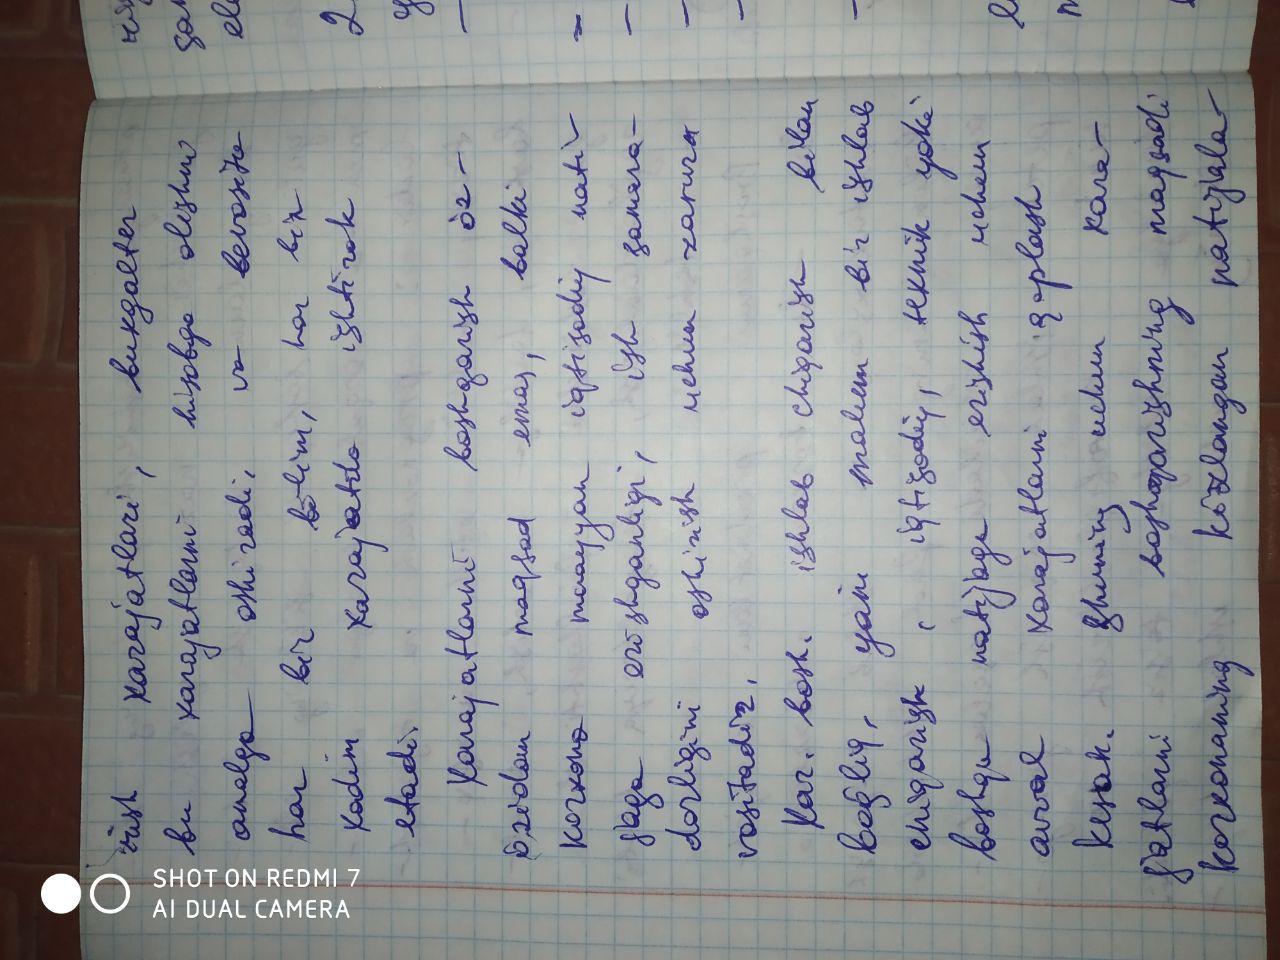 rish xarajatlari, buxgalter
bu xarajatlarni hisobga olishni
amalga oshiradi, va bevosita
har bir bo'lim, har bir
xodim xarajatda ishtirok
etadi.
Xarajatlarni boshqarish öz-
özidan maqsad emas, balki
korxona muayyan iqtisodiy nati-
jaga erishganligi, ish samara-
dorligini oshirish uchun zarur
vositadir.
Xar. bosh. ishlab chiqarish bilan
bog'liq, yani malum bir ishlab
chiqarish, iqtisodiy, texnik yoki
boshqa natijaga erishish uchun
avval xarajatlarni qoplash
kerak. Shuning uchun xara-
jatlarni boshqarishning maqsadi
korxonaning közlangan natijala-
SHOT ON REDMI 7
AI DUAL CAMERA